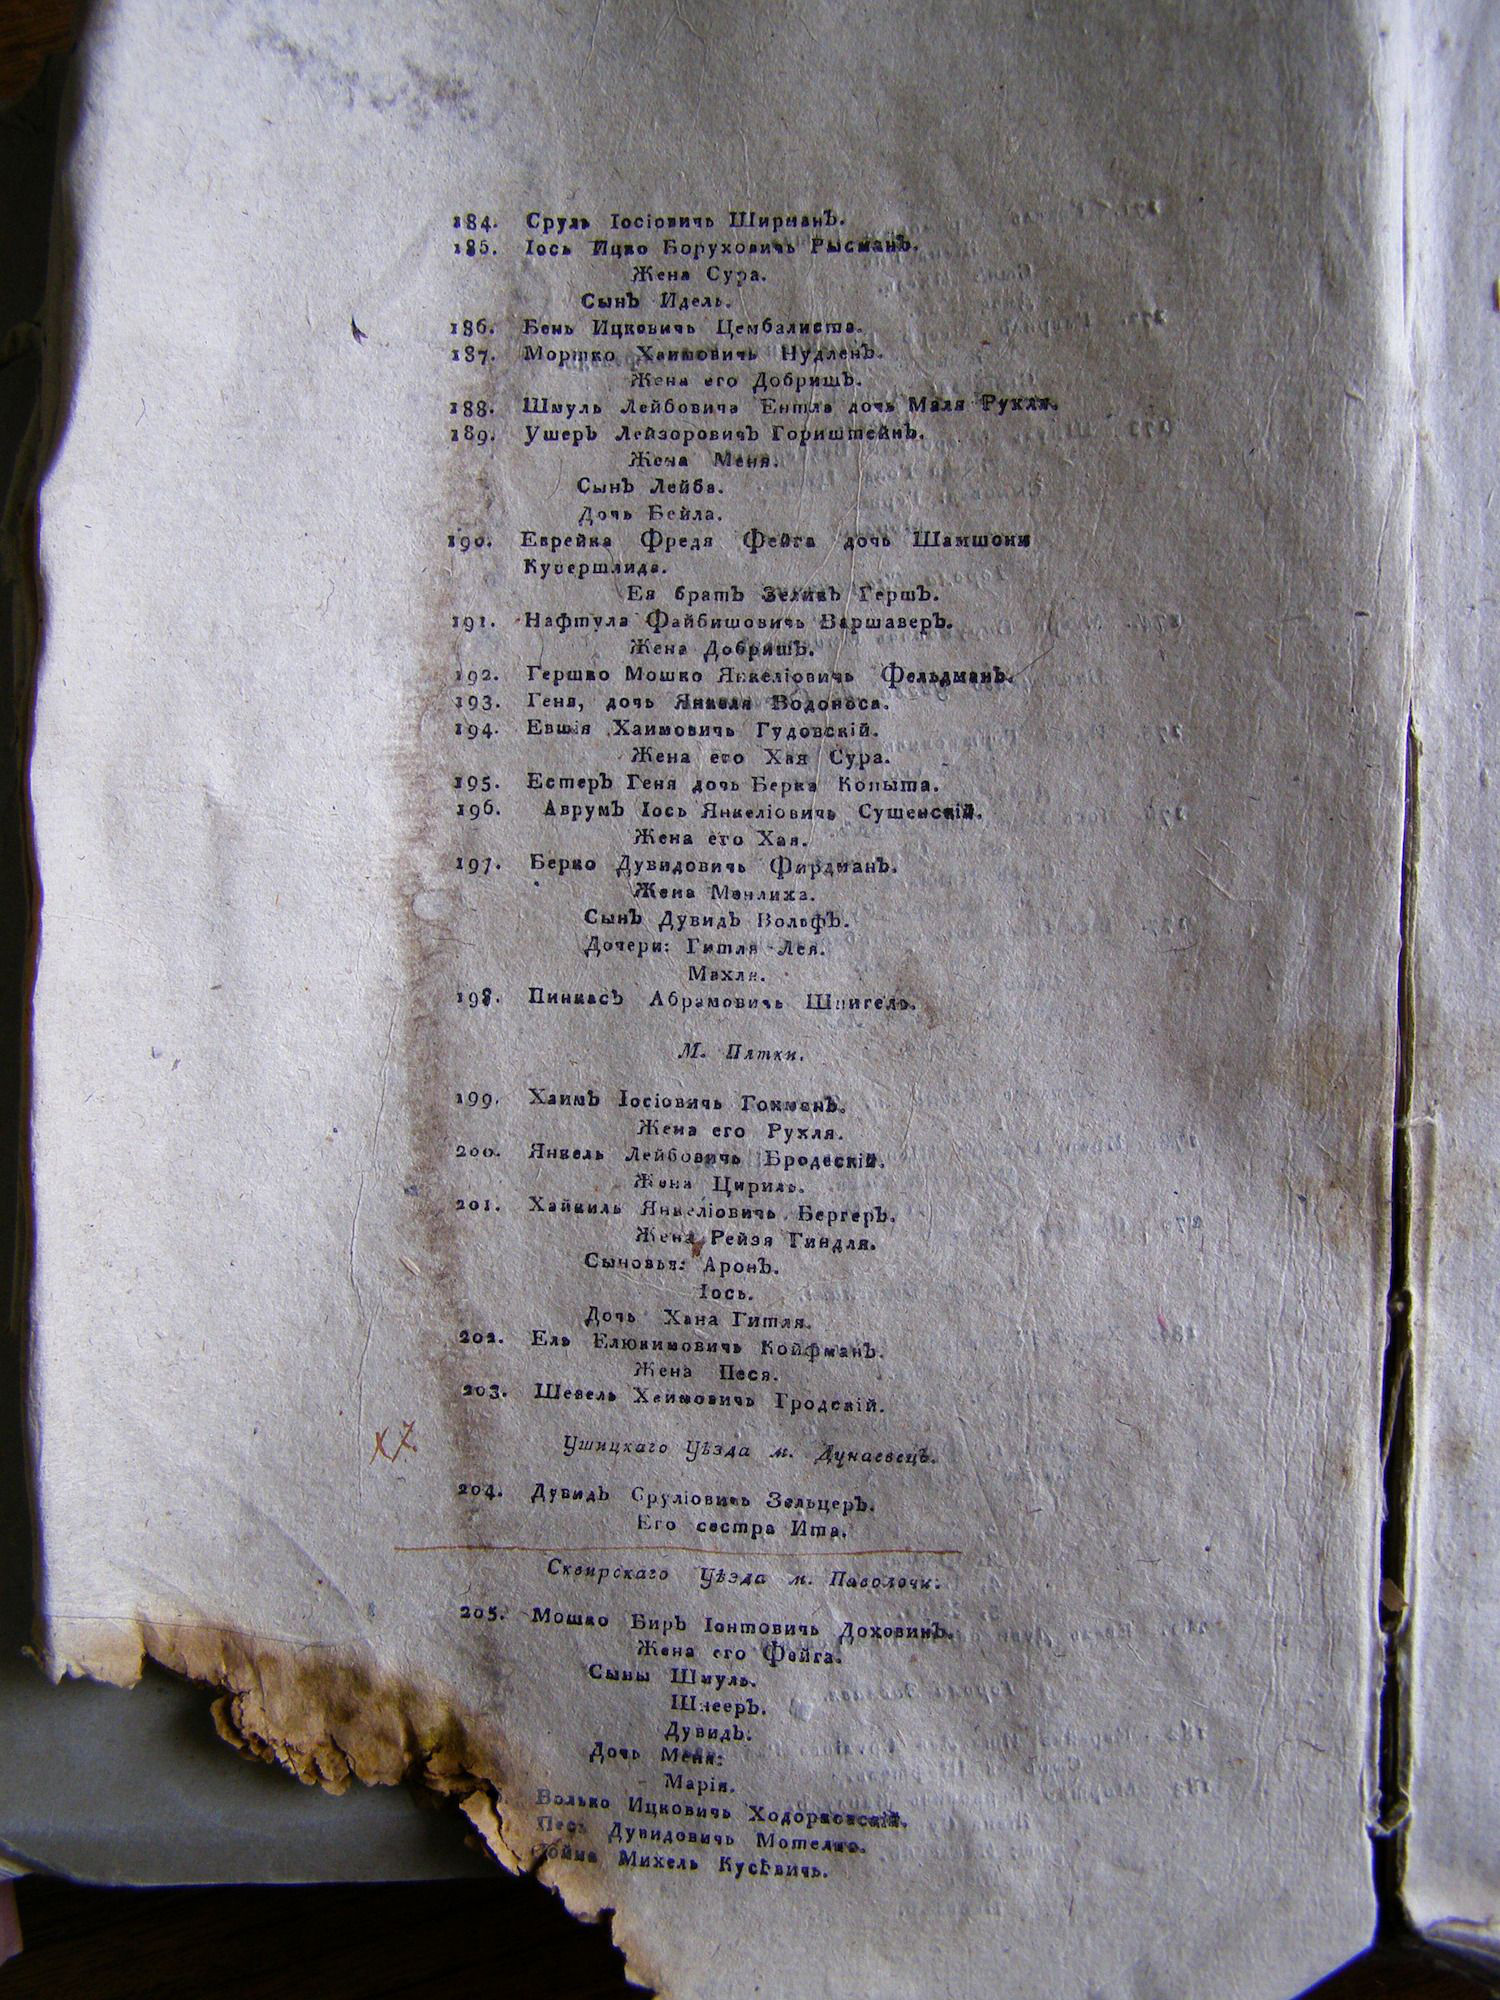 184. Сруль Іосіовичь Ширманъ.
185. Іось Ицко Боруховичь Рысманъ.
Жена Сура.
Сынъ Идель.
186. Бень Ицковичь Цембалиста.
187. Мортко Хаимовичь Нудленъ.
Жена его Добришъ.
188. Шмуль Лейбовича Ентла дочь Маля Рухля.
189. Ушеръ Лейзоровичъ Гориштейнъ.
Жена Меня.
Сынъ Лейба.
Дочь Бейла.
190. Еврейка Фредя Фейга дочь Шамшона
Купершлида.
Ея братъ Зеликъ Гершъ.
191. Нафтула Файбишовичь Варшаверъ.
Жена Добришъ.
192. Гершко Мошко Янкеліовичь Фельдманъ.
193. Геня, дочь Янкеля Водоноса.
194. Евшія Хаимовичь Гудовскій.
Жена его Хая Сура.
195. Естеръ Геня дочь Берка Копыта.
196. Аврумъ Іось Янкеліовичь Сушенскій.
Жена его Хая.
197. Берко Дувидовичь Фирдманъ.
Жена Менлиха.
Сынъ Дувидъ Вольфъ.
Дочери: Гитля Лея.
Махля.
198. Пинкасъ Абрамовичь Шпигель.
М. Пятки.
199. Хаимъ Іосіовичь Гохманъ.
Жена его Рухля.
200. Янкель Лейбовичь Бродескій.
Жена Цириль.
201. Хайкиль Янкеліовичь Бергеръ.
Жена Рейзя Гиндля.
Сыновья: Аронъ.
Іось.
Дочь Хана Гитля.
202. Ель Елюкимовичь Койфманъ.
Жена Песя.
203. Шевель Хаимовичь Гродскій.
Ушицкаго Уѣзда м. Дунаевецъ.
204. Дувидъ Сруліовичь Зельцеръ.
Его сестра Ита.
Сквирскаго Уѣзда м. Паволочи.
205. Мошко Биръ Іонтовичь Доховинъ.
Жена его Фейга.
Сыны Шмуль.
Шнееръ.
Дувидъ.
Дочь Меня:
Марія.
Волько Ицковичь Ходорковскій.
Дувидовичь Мотелко.
Михель Кусѣвичь.